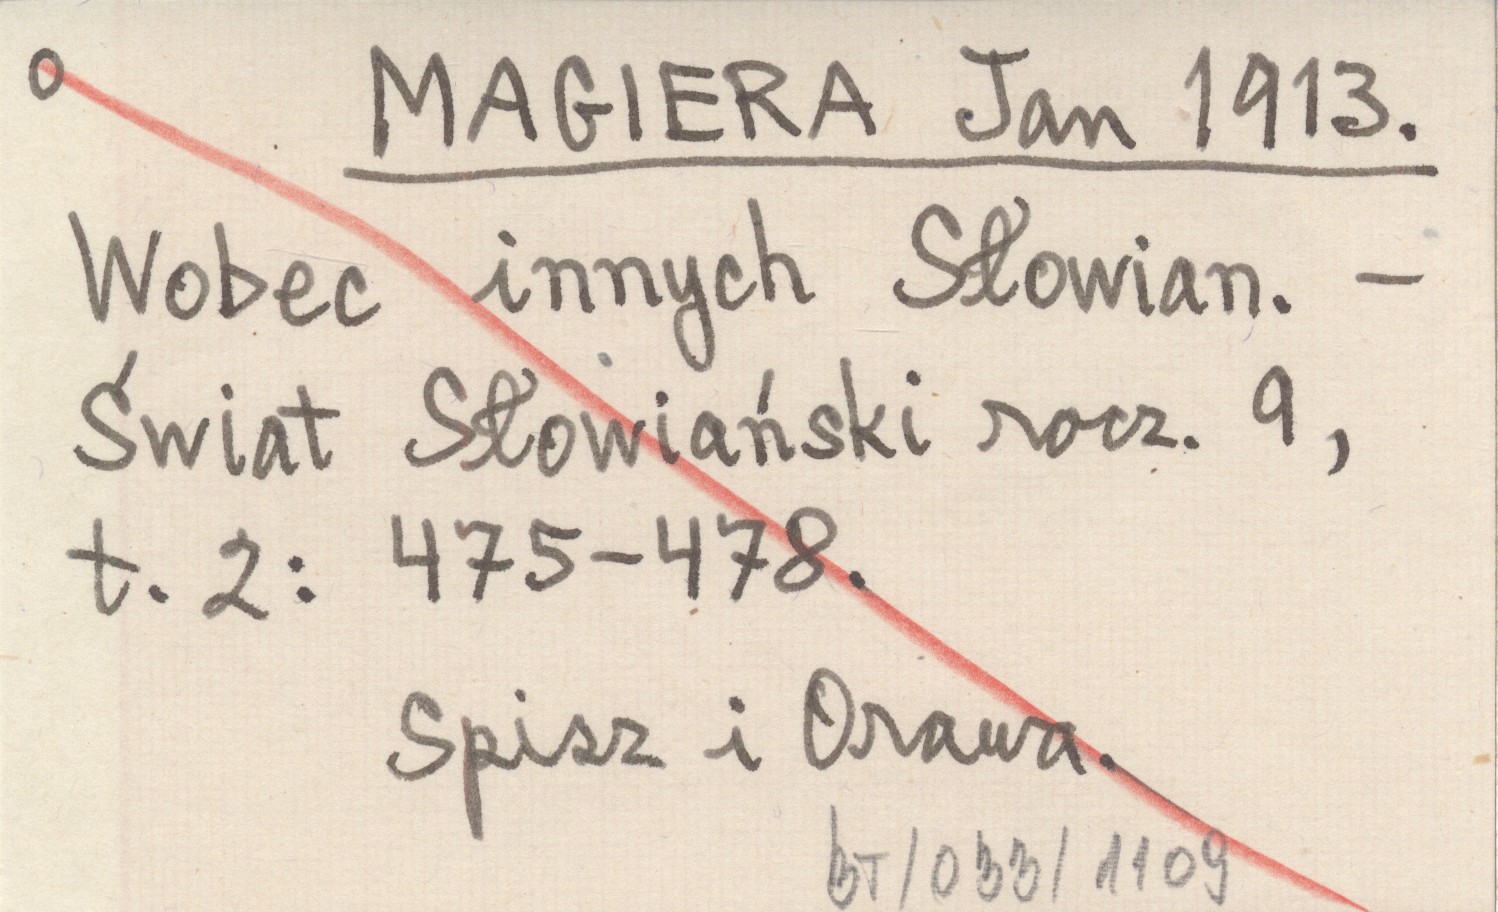 o MAGIERA Jan 1913.
Wobec innych Słowian. –
Świat Słowiański rocz. 9,
t. 2: 475–478.
Spisz i Orawa.
bT/033/1109